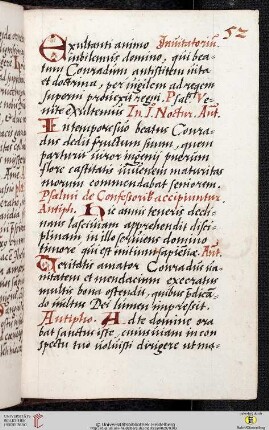 52
Exultanti animo Inuitatorium.
iubilemus domino, qui bea-
tum Conradum antistitem vita
et doctrina, per vigilem ad regem
superni prouexit regni. Psal. Ve-
nite exultemus In I. Noctur. Ant.
In temporesuo beatus Conra-
dus dedit fructum suum, quem
parturit iuror ingenij puerum
flore castitatis iuuenem maturitas
morum commendabat seniorem.
Psalmi de Confessorib accipiuntur.
Antiph. Hic annis teneris decli-
nans lasciuiam apprehendit disci-
plinam in illo seruiens domino
timore qui est initium sapientiae. Ant.
Veritatis amator Conradus va-
nitatem et mendacium execratus
multis bona ostendit, quibus p̄dicā-
do vultus Dei lumen impressit.
Antipho. Ad te domine ora
bat sanctus iste, cuius viam in con
spectu tuo voluisti dirigere ut ma-
Universitätsbibliothek Heidelberg